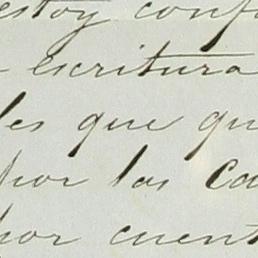 estoy conf
escritura
les que qu
por los ca
por cuent